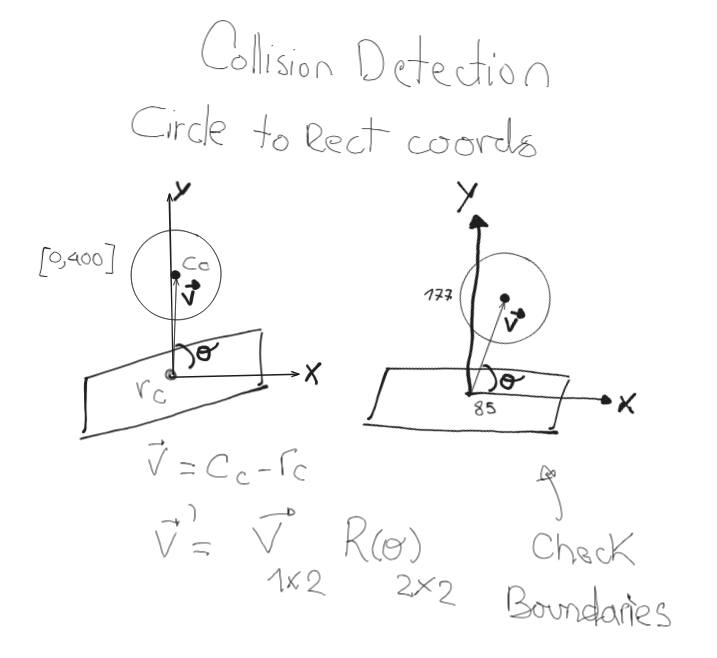 Collision Detection
Circle to Rect coords
Y
[0,400]
Cc
V
θ
X
rc
Y
177
V
θ
X
85
V = Cc - rc
V' = V R(θ)
1x2 2x2
Check
Boundaries